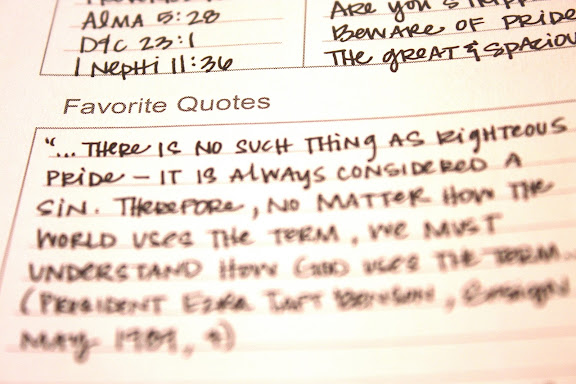 Alma 5:28
D&C 23:1
1 Nephi 11:36
Are you stripp
Beware of Pride
The great & spaciou
Favorite Quotes
"... There is no such thing as righteous
pride – it is always considered a
sin. Therefore, no matter how the
world uses the term, we must
understand how God uses the term...
(President Ezra Taft Benson, Ensign
May 1989,